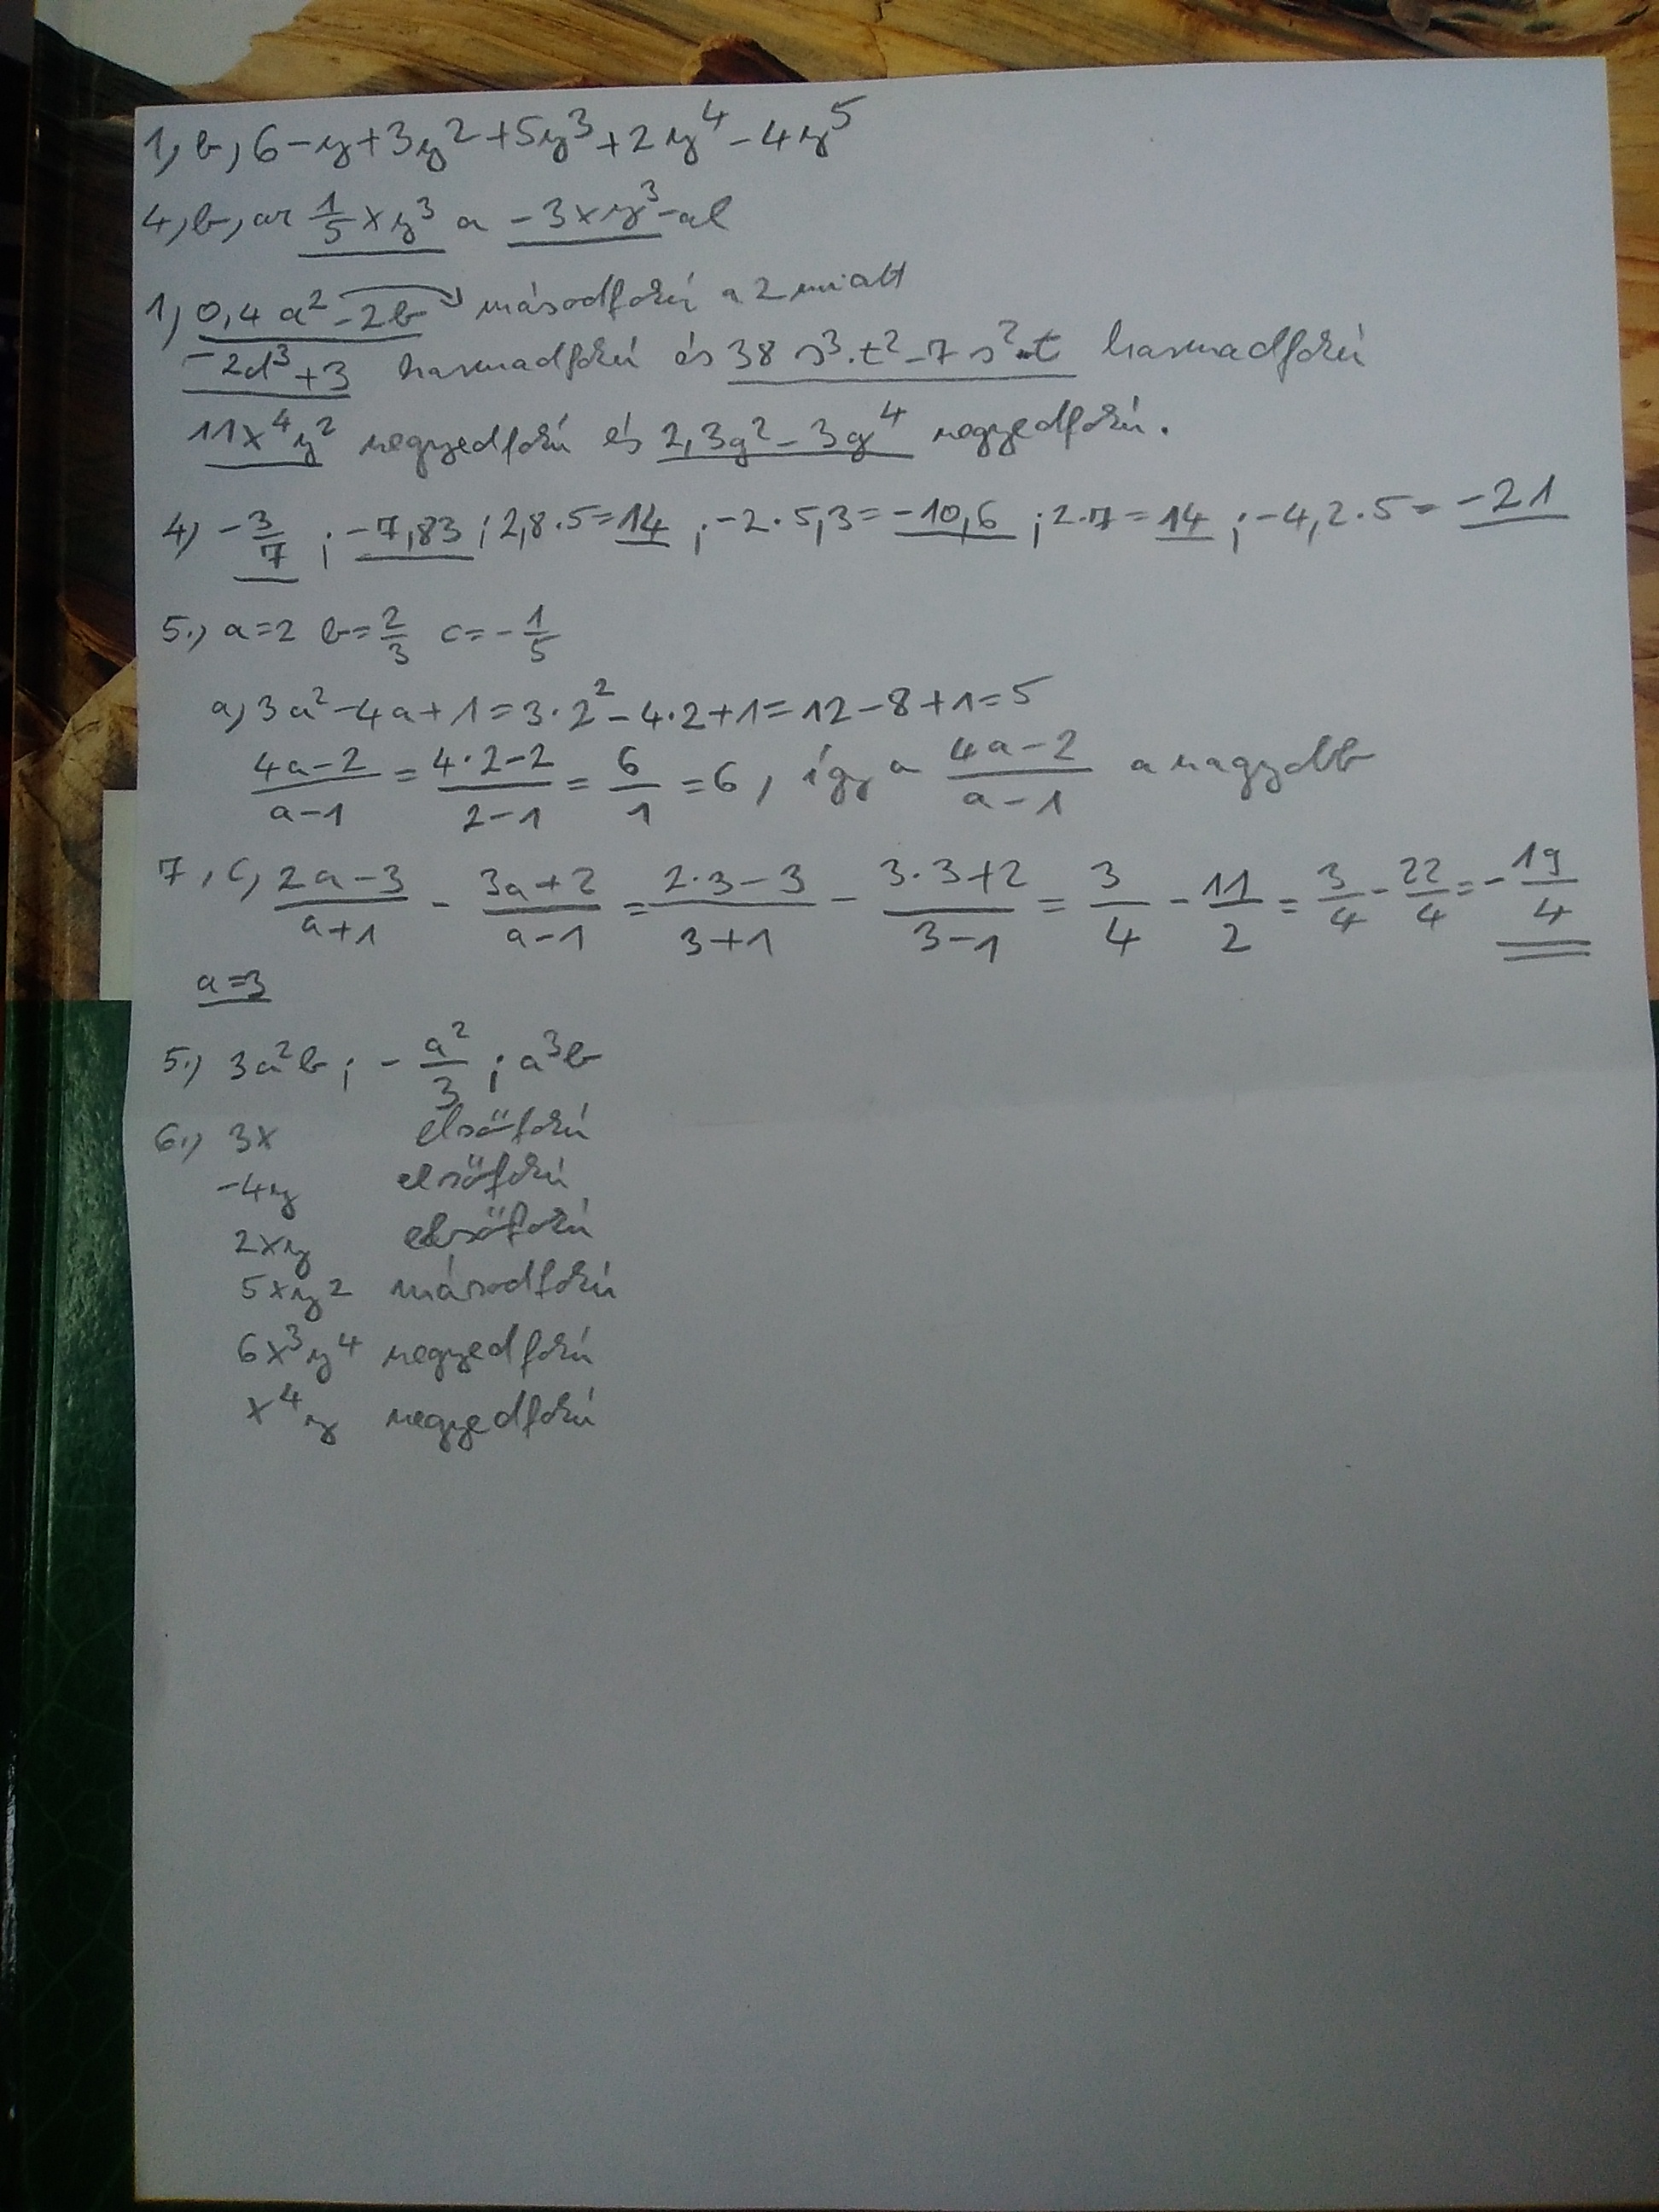 1, b, 6 - y + 3y² + 5y³ + 2y⁴ - 4y⁵
4, b, az 1/5 xy³ a -3xy³-al
1, 0,4a² - 2b másodfokú a 2 miatt
-2d³ + 3 harmadfokú és 38 s³·t² - 7 s²·t harmadfokú
11x⁴y² negyedfokú és 2,3g² - 3g⁴ negyedfokú.
4, -3/7 ; -7,83 ; 2,8·5 = 14 ; -2·5,3 = -10,6 ; 2·7 = 14 ; -4,2·5 = -21
5., a=2 b=2/3 c=-1/5
a, 3a² - 4a + 1 = 3·2² - 4·2 + 1 = 12 - 8 + 1 = 5
(4a-2)/(a-1) = (4·2-2)/(2-1) = 6/1 = 6, így a (4a-2)/(a-1) a nagyobb
7, c, (2a-3)/(a+1) - (3a+2)/(a-1) = (2·3-3)/(3+1) - (3·3+2)/(3-1) = 3/4 - 11/2 = 3/4 - 22/4 = -19/4
a=3
5., 3a²b ; -a²/3 ; a³b
6., 3x elsőfokú
-4y elsőfokú
2xy elsőfokú
5xy² másodfokú
6x³y⁴ negyedfokú
x⁴y negyedfokú